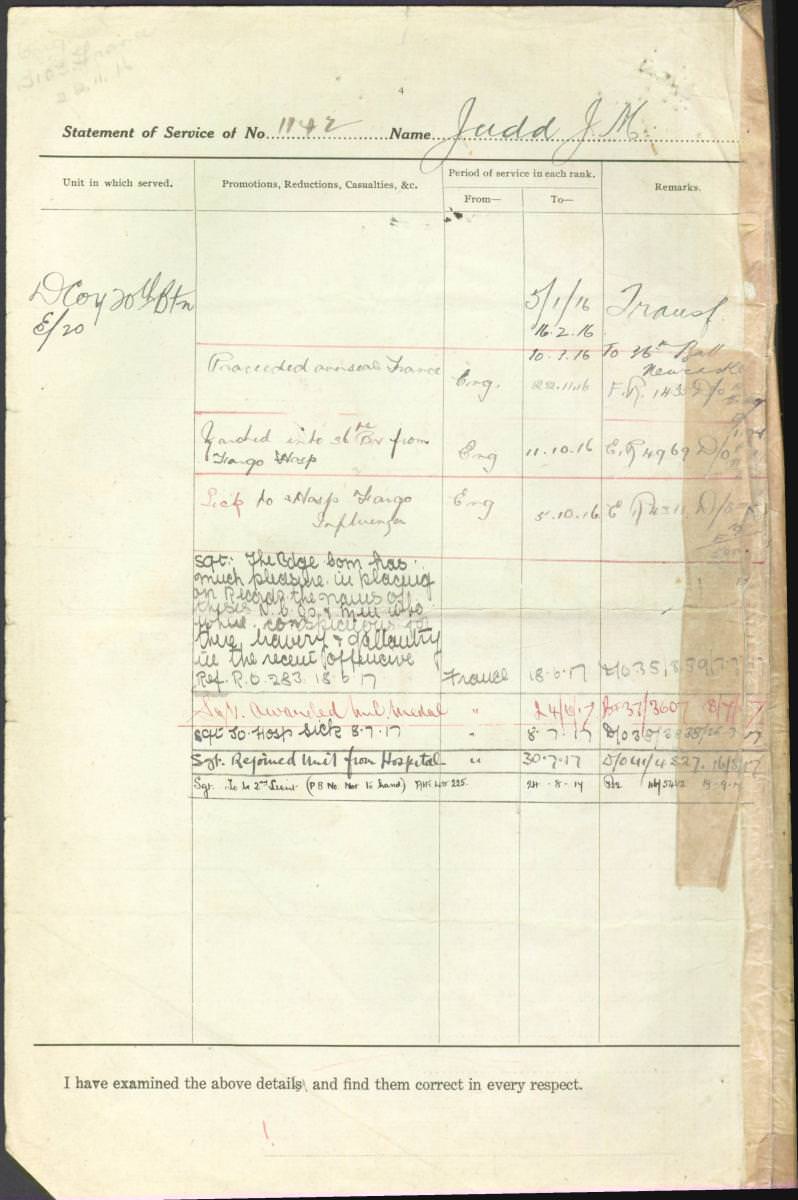 4
Statement of Service of No. 1142 Name Judd J. M.
Unit in which served.
Promotions, Reductions, Casualties, &c.
Period of service in each rank.
From—
To—
Remarks.
D Coy 20th Btn
E/20
5/1/16 Transf
16.2.16
To 36th Batt
Newcastle
Proceeded overseas France Eng. 22.11.16 E.R. 143 D/o
Marched into 36th Bn from
Fargo Hosp Eng 11.10.16 E.R 4969 D/o
Sick to Hosp Fargo Eng
Influenza 5.10.16 E R D/o
Sgt: The Bdge Com has
much pleasure in placing
on Record the names of
these N.C.Os & Men who
were conspicuous for
their bravery & gallantry
in the recent offensive
Ref. R.O. 283. 18.6.17 France 18.6.17
Sgt. awarded Mil. Medal " 
Sgt To Hosp Sick 8.7.17 " 8.7.17
Sgt. Rejoined Unit from Hospital " 30.7.17 D/o 41/4827.
Sgt. To be 2nd Lieut (P B No. Not to hand) 24.8.17
I have examined the above details and find them correct in every respect.